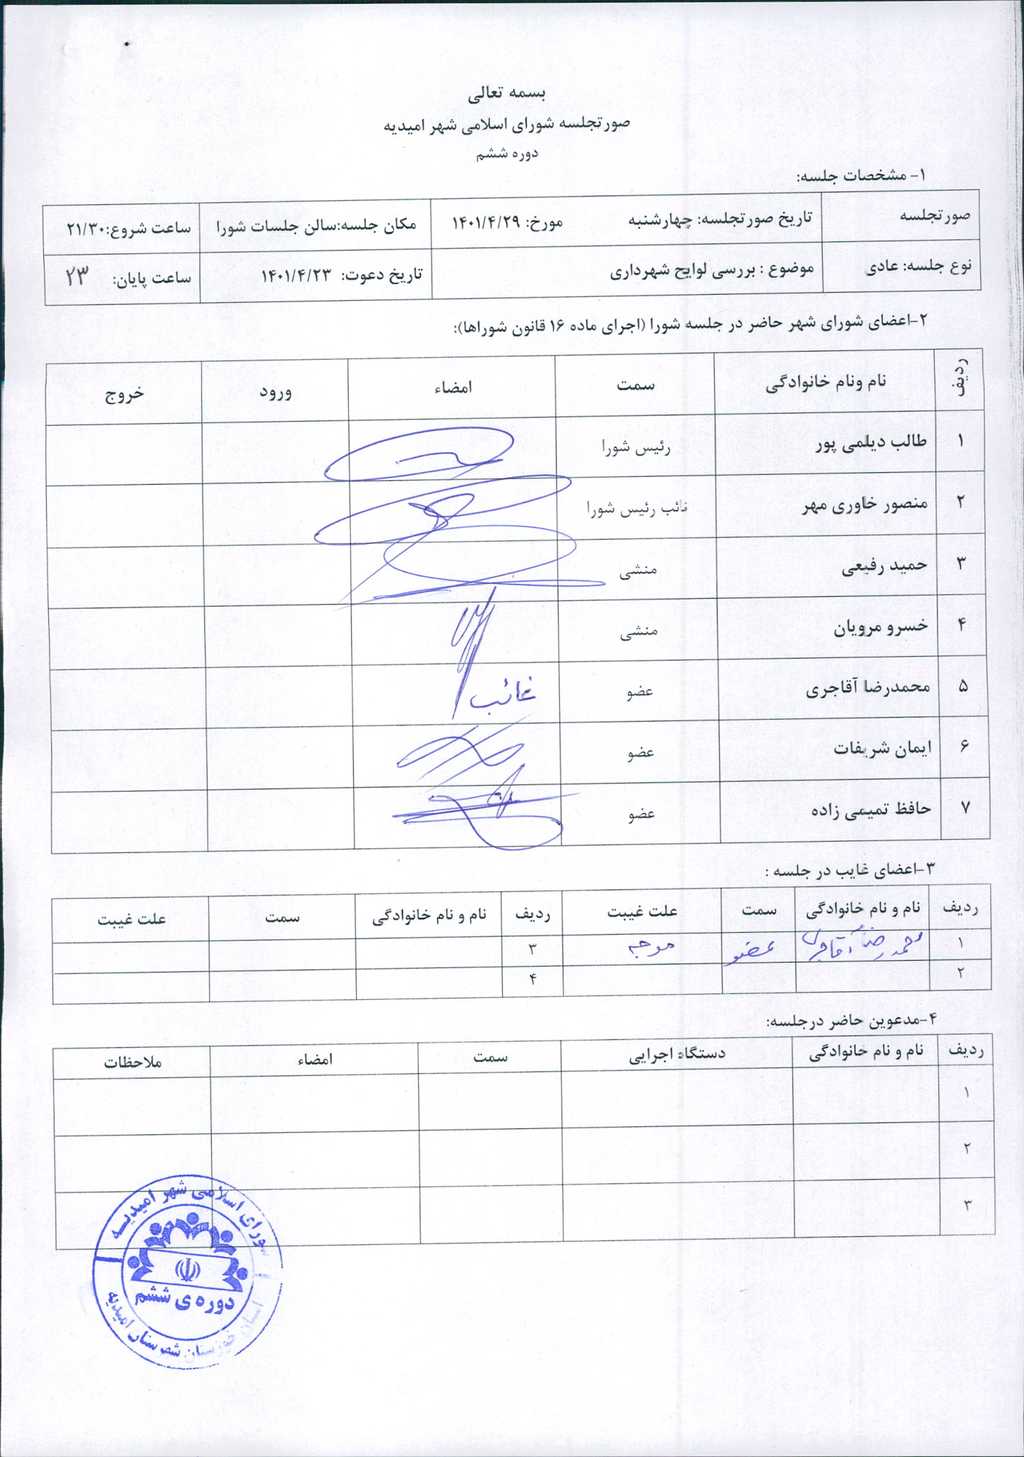 بسمه تعالی
صورتجلسه شورای اسلامی شهر امیدیه
دوره ششم
۱- مشخصات جلسه:
صورتجلسه تاریخ صورتجلسه: چهارشنبه مورخ: ۱۴۰۱/۴/۲۹ مکان جلسه:سالن جلسات شورا ساعت شروع:۲۱/۳۰
نوع جلسه: عادی موضوع : بررسی لوایح شهرداری تاریخ دعوت: ۱۴۰۱/۴/۲۳ ساعت پایان: ۲۳
۲-اعضای شورای شهر حاضر در جلسه شورا (اجرای ماده ۱۶ قانون شوراها):
ردیف نام ونام خانوادگی سمت امضاء ورود خروج
۱ طالب دیلمی پور رئیس شورا
۲ منصور خاوری مهر نائب رئیس شورا
۳ حمید رفیعی منشی
۴ خسرو مرویان منشی
۵ محمدرضا آقاجری عضو غائب
۶ ایمان شریفات عضو
۷ حافظ تمیمی زاده عضو
۳-اعضای غایب در جلسه :
ردیف نام و نام خانوادگی سمت علت غیبت ردیف نام و نام خانوادگی سمت علت غیبت
۱ محمدرضا آقاجری عضو موجه ۳
۲ ۴
۴-مدعوین حاضر درجلسه:
ردیف نام و نام خانوادگی دستگاه اجرایی سمت امضاء ملاحظات
۱
۲
۳
شورای اسلامی شهر امیدیه
دوره ی ششم
استان خوزستان شهرستان امیدیه